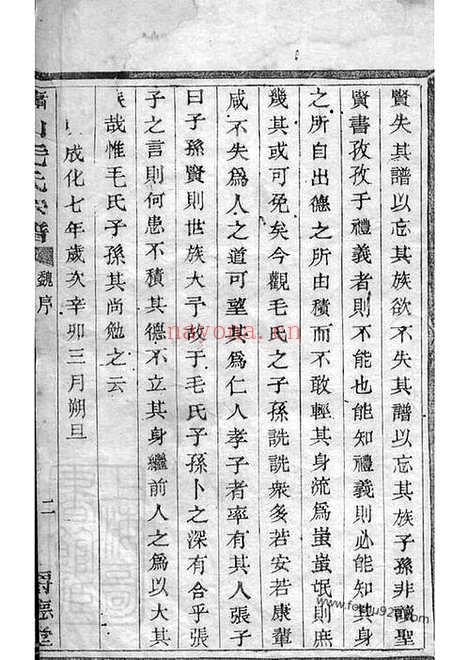 賢失其譜以忘其族欲不失其譜以忘其族子孫非讀聖
賢書孜孜于禮義者則不能也能知禮義則必能知其身
之所自出德之所由積而不敢輕其身流爲蚩蚩氓則庶
幾其或可免矣今觀毛氏之子孫詵詵衆多若安若康輩
咸不失爲人之道可望其爲仁人孝子者率有其人張子
曰子孫賢則世族大予故于毛氏子孫卜之深有合乎張
子之言則何患不積其德不立其身繼前人之爲以大其
哉惟毛氏子孫其尚勉之云
成化七年歲次辛卯三月朔旦
山毛氏宗譜 魏序 二 爵德堂
nayona.cn